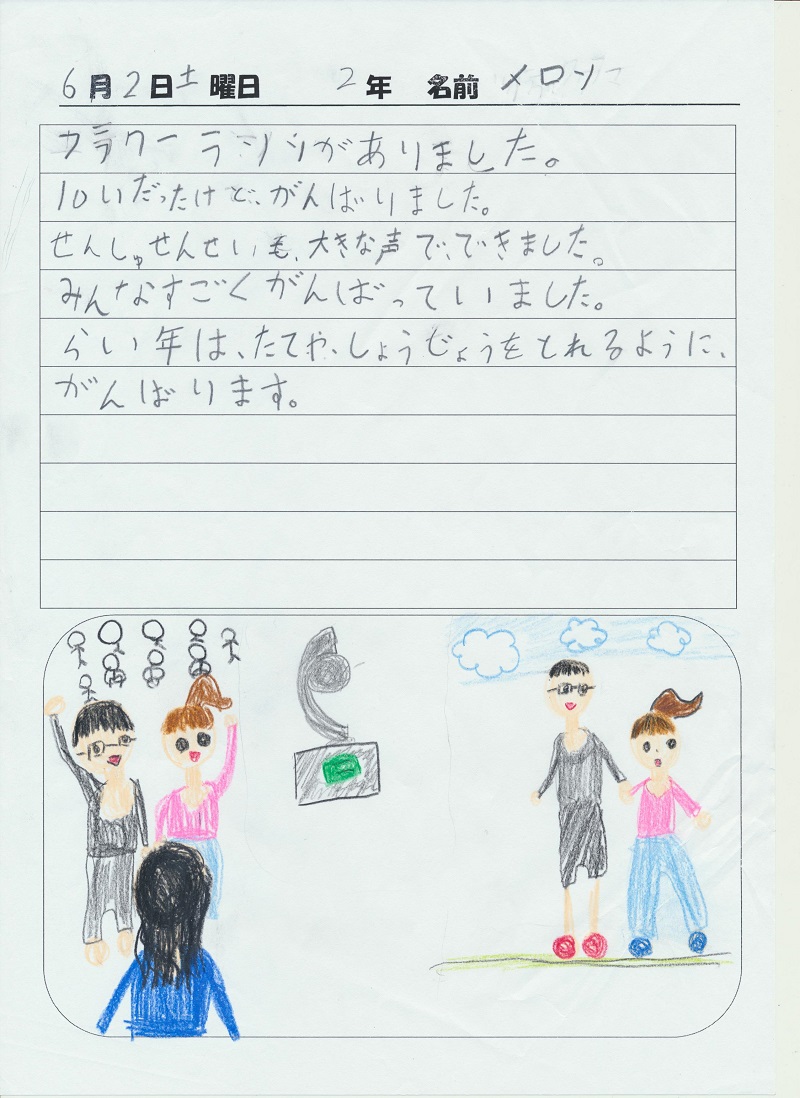 6月2日土曜日 2年 名前 メロン
がありました。
10いだったけど、がんばりました。
せんしゅせんせいも、大きな声で、できました。
みんなすごくがんばっていました。
らい年は、たてや、しょうじょうをとれるように、
がんばります。